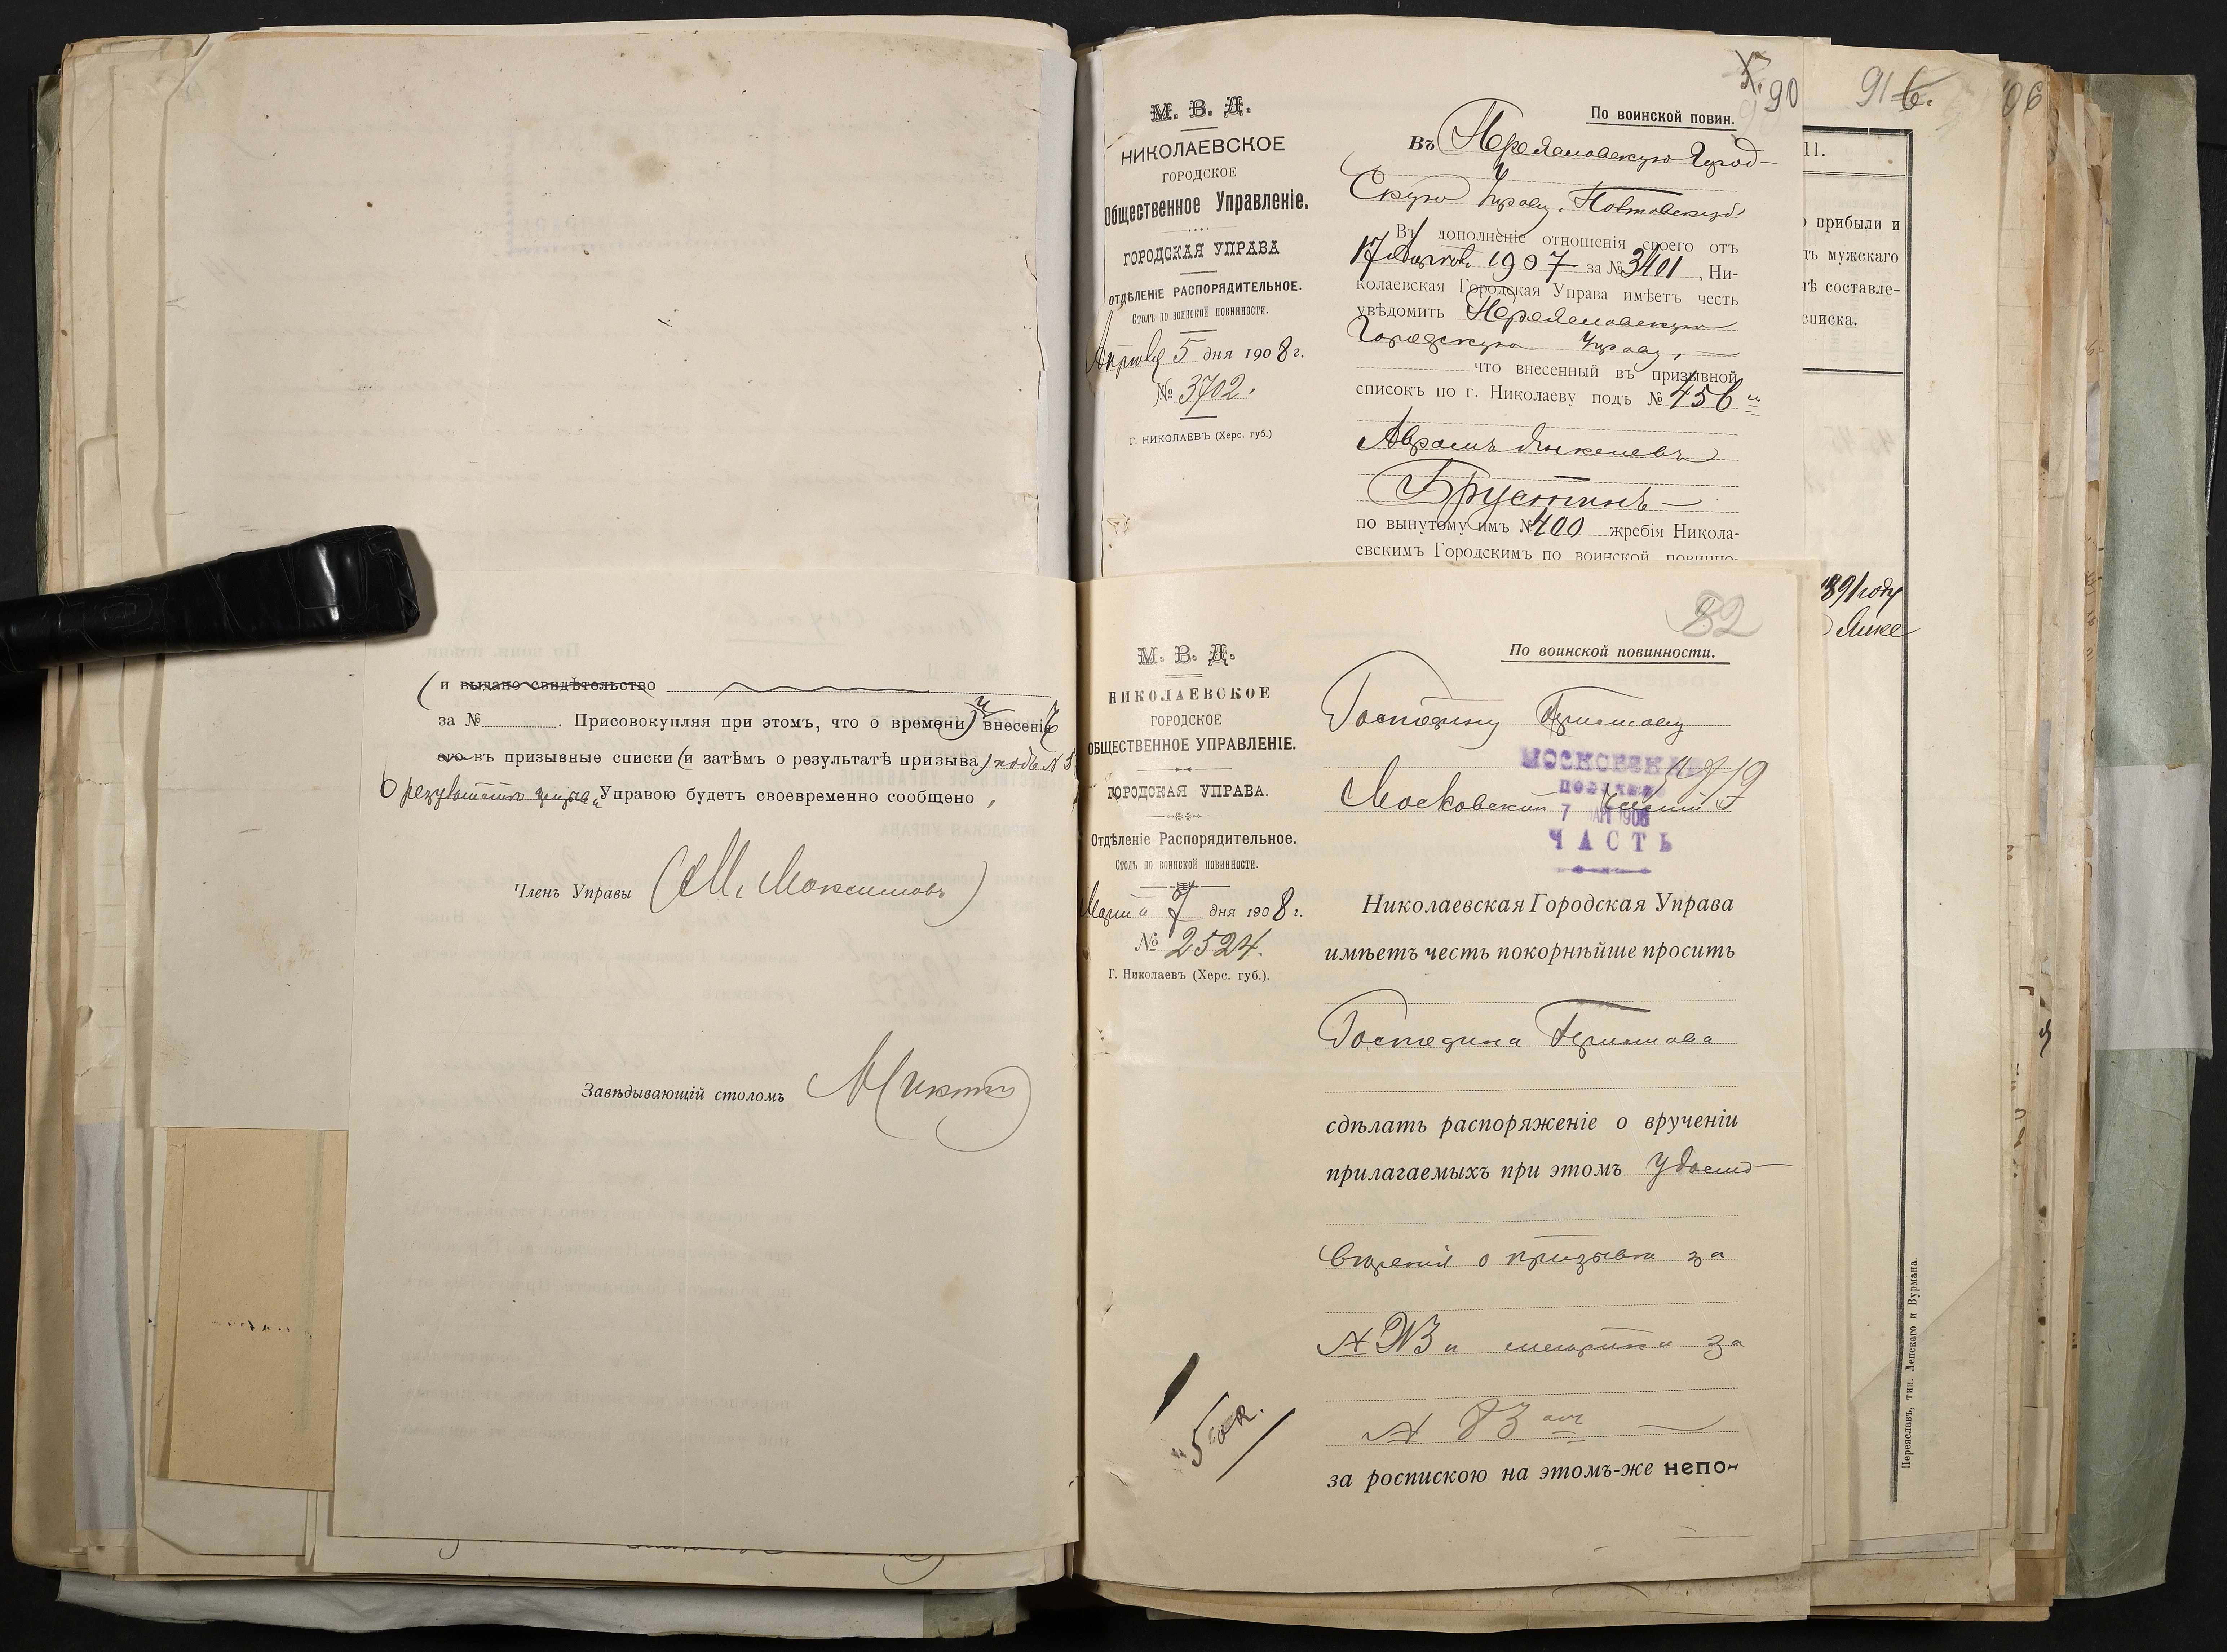 (и выдано свидѣтельство
за № . Присовокупляя при этомъ, что о времени) и внесенія
его въ призывные списки (и затѣмъ о результатѣ призыва) подъ №
О результатѣ призыва Управою будетъ своевременно сообщено
Членъ Управы (М. Максимовъ)
Завѣдывающій столомъ
90
М. В. Д.
НИКОЛАЕВСКОЕ
ГОРОДСКОЕ
Общественное Управленіе.
ГОРОДСКАЯ УПРАВА
ОТДѢЛЕНІЕ РАСПОРЯДИТЕЛЬНОЕ.
Столъ по воинской повинности.
Апрѣля 5 дня 1908 г.
№ 3702.
Г. НИКОЛАЕВЪ (Херс. губ.)
По воинской повин.
Въ Переяславскую Город-
скую Управу, Полтавской
Въ дополненіе отношенія своего отъ
17 1907 за № 3401, Ни-
колаевская Городская Управа имѣетъ честь
увѣдомить Переяславскую
Городскую Управу,
что внесенный въ призывной
списокъ по г. Николаеву подъ № 456
Аврамъ Янкелевъ
Брустинъ
по вынутому имъ № 400 жребія Никола-
евскимъ Городскимъ по воинской повинно-
82
М. В. Д.
НИКОЛАЕВСКОЕ
ГОРОДСКОЕ
ОБЩЕСТВЕННОЕ УПРАВЛЕНІЕ.
ГОРОДСКАЯ УПРАВА.
Отдѣленіе Распорядительное.
Столъ по воинской повинности.
Марта 7 дня 1908 г.
№ 2524.
Г. Николаевъ (Херс. губ.).
По воинской повинности.
Господину Приставу
Московской части
МОСКОВСКАЯ
7 МАР 1908
ЧАСТЬ
Николаевская Городская Управа
имѣетъ честь покорнѣйше просить
Господина Пристава
сдѣлать распоряженіе о врученіи
прилагаемыхъ при этомъ удосто-
вѣренія о призывѣ за
№ и метрики за
№ 83
за роспискою на этомъ-же непо-
91
11.
прибыли и
мужскаго
составле-
списка.
1891 году
Переяславъ, тип. Ленскаго и Вурмана.